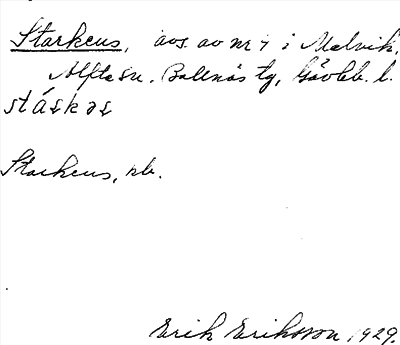 Starkeus, avs. av nr 7 i Malvik,
Alfta sn. Bollnäs tg, Gävleb. l.
stáskəs
Starkeus, pb.
Erik Eriksson 1929.